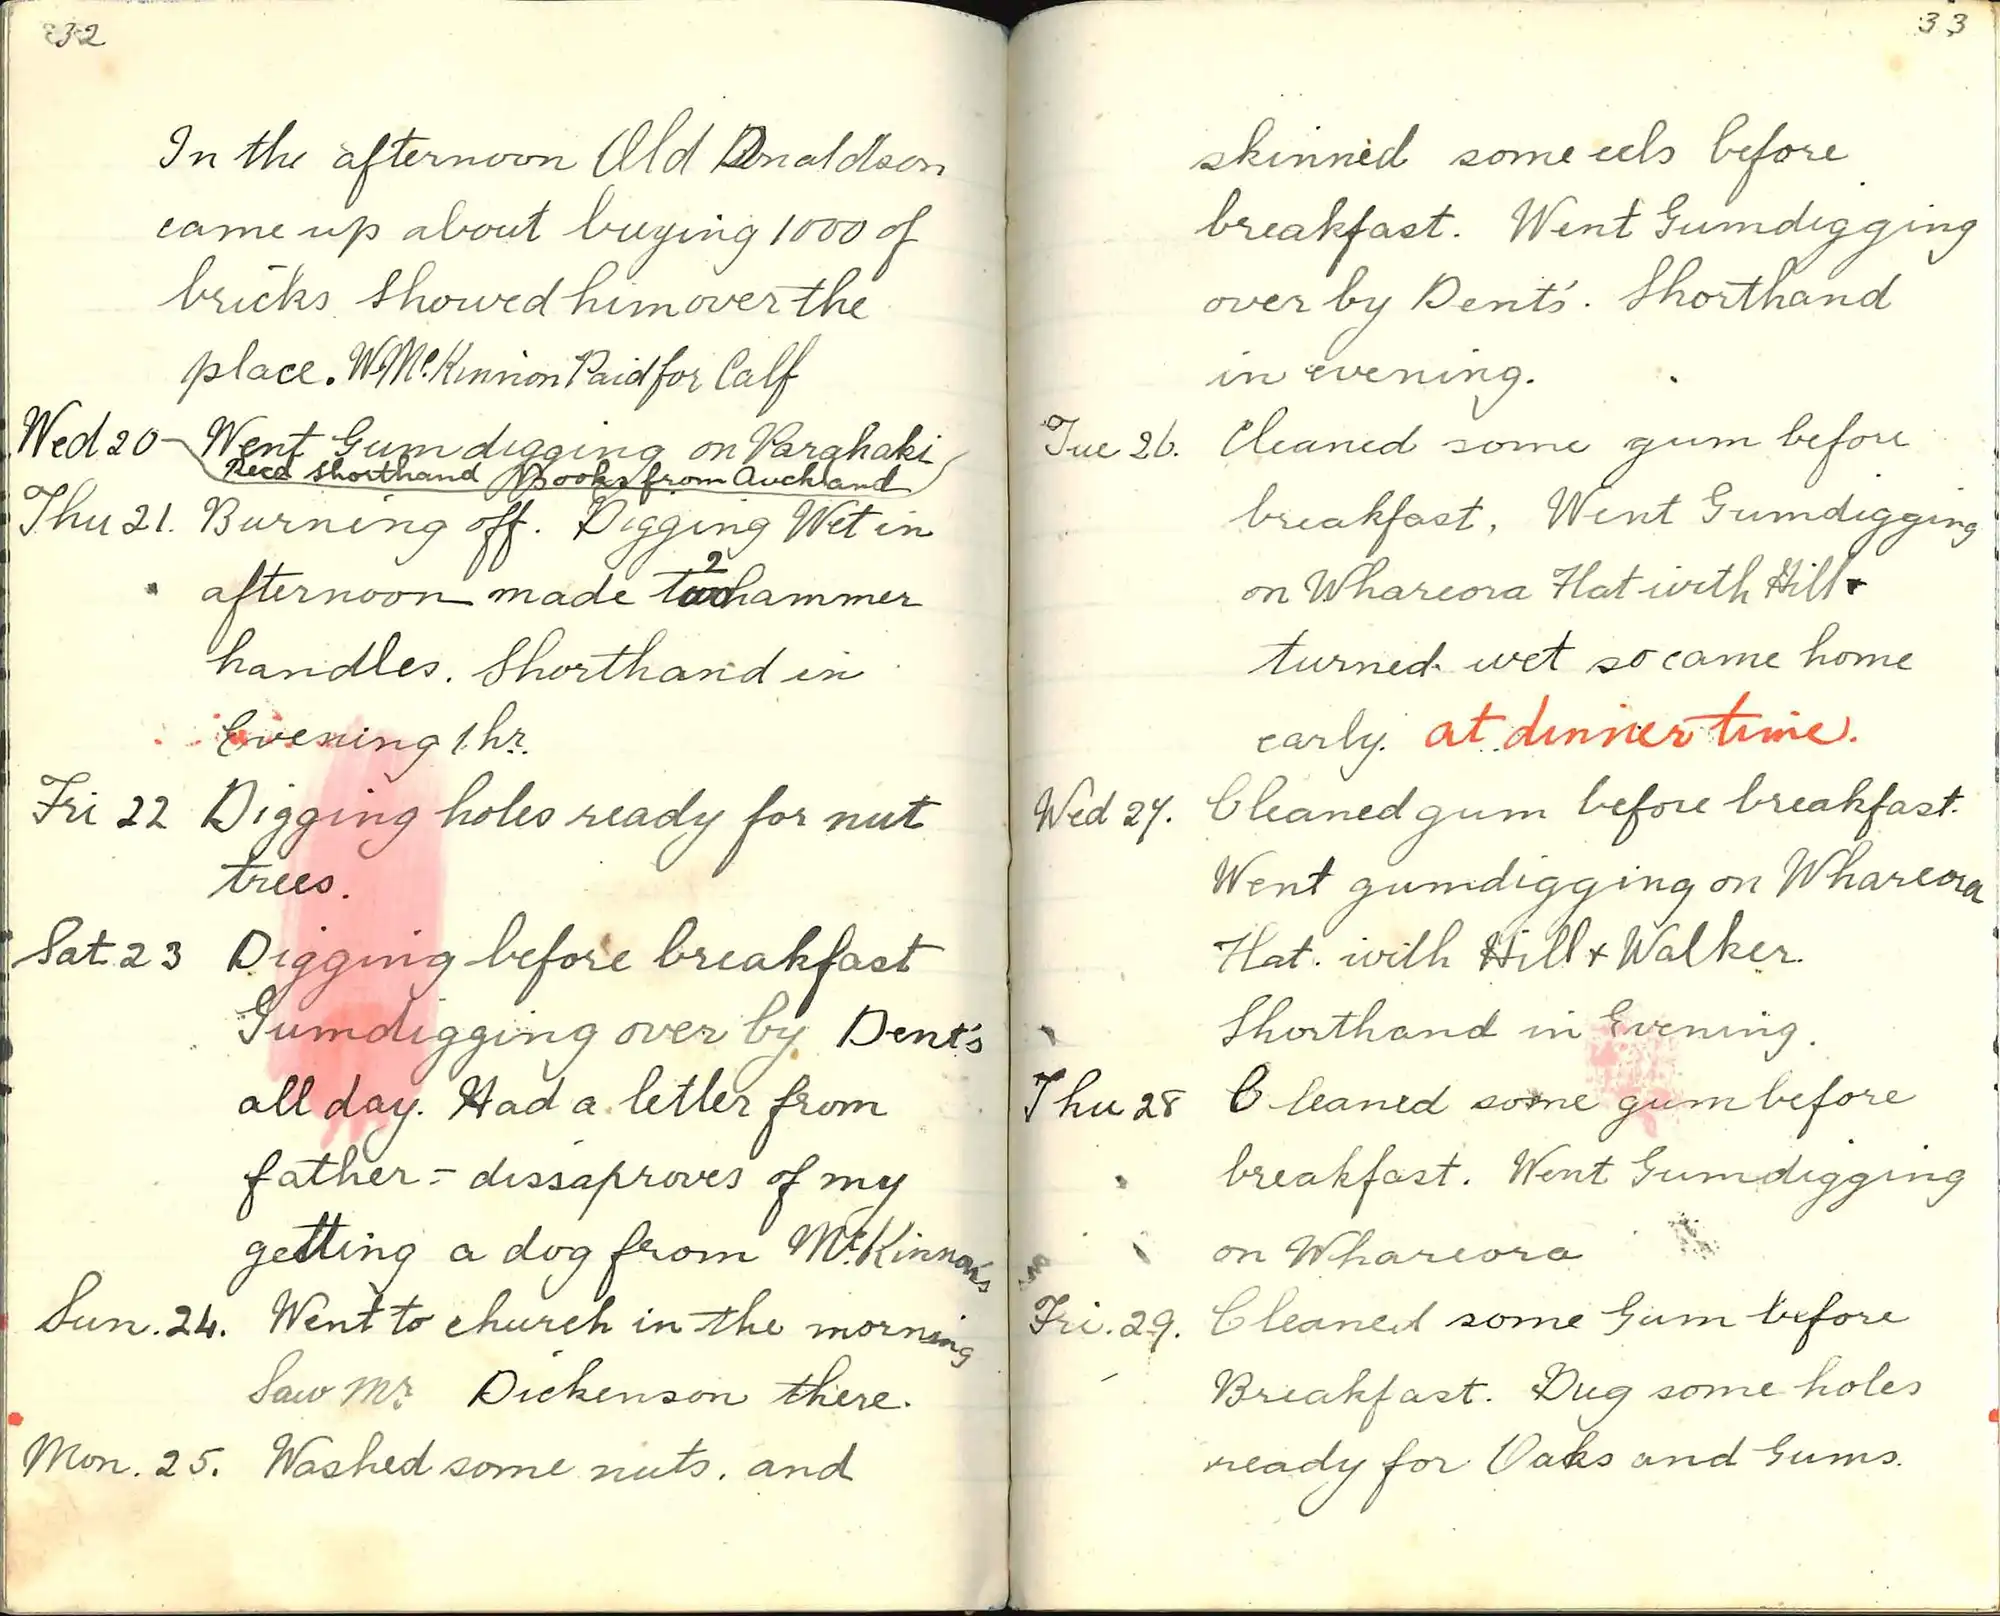 32
In the afternoon Old Donaldson
came up about buying 1000 of
bricks. Showed him over the
place. W. McKinnon Paid for Calf
Wed 20 Went Gumdigging on Parahaki
Recd shorthand Books from Auckland
Thu 21. Burning off. Digging Wet in
afternoon made 2 hammer
handles. Shorthand in
Evening 1 hr.
Fri 22 Digging holes ready for nut
trees.
Sat. 23 Digging before breakfast
Gumdigging over by Dent's
all day. Had a letter from
father - dissaproves of my
getting a dog from McKinnon's
Sun. 24. Went to church in the morning
Saw Mr Dickenson there.
Mon. 25. Washed some nuts. and
33
skinned some eels before
breakfast. Went Gumdigging
over by Dent's. Shorthand
in evening.
Tue 26. Cleaned some gum before
breakfast, Went Gumdigging
on Whareora Flat with Hill +
turned wet so came home
early. at dinner time.
Wed 27. Cleaned gum before breakfast.
Went gumdigging on Whareora
Flat. with Hill + Walker.
Shorthand in Evening.
Thu 28 Cleaned some gum before
breakfast. Went Gumdigging
on Whareora
Fri. 29. Cleaned some Gum before
Breakfast. Dug some holes
ready for Oaks and Gums.